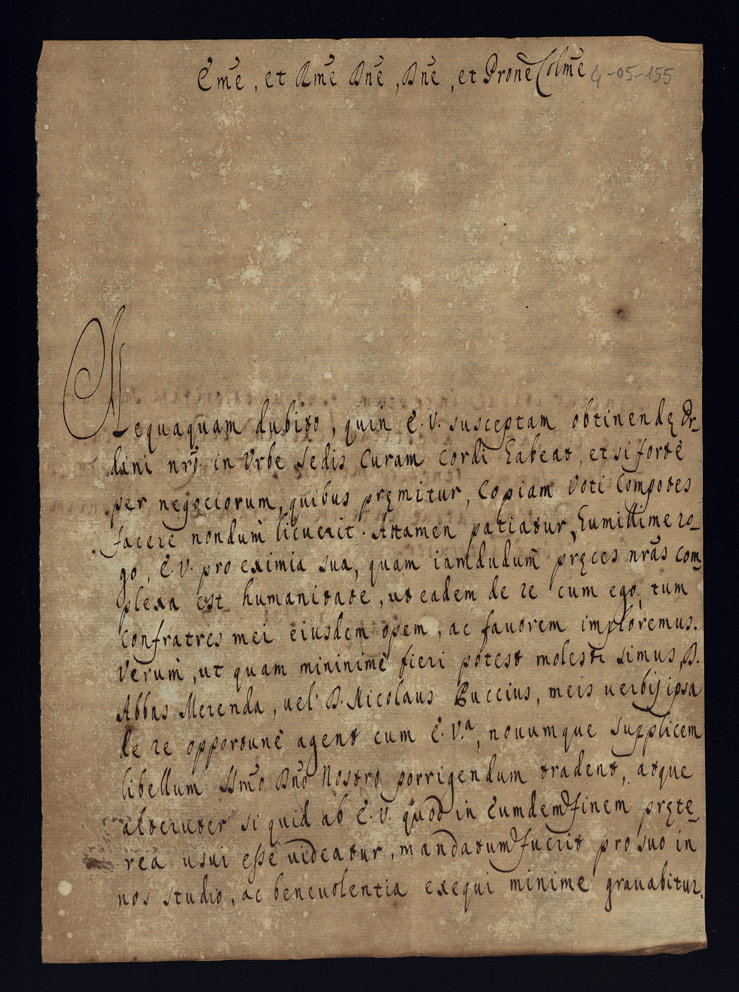 Em̃e, et Rm̃e Dnẽ, Dnẽ, et Pronẽ Colm̃e 4-05-155
Nequaquam dubito, quin E. V. susceptam obtinendę Or-
dini nrõ in Urbe Sedis Curam Cordi habeat, et si fortè
per negociorum, quibus pręmitur, Copiam Voti Compotes
facere nondum̃ licuerit. Attamen patiatur, humillime ro-
go, E. V. pro eximia sua, quam iamdudum̃ pręces nrãs com-
plexa est humanitate, ut eadem de re cum ego, tum
Confratres mei eiusdem opem, ac fauorem imploremus.
Verum̃, ut quam mininimè fieri potest molesti simus, D.
Abbas Merenda, uel D. Nicolaus Buccius, meis uerbis ipsa
de re opportunè agent cum E. V.ª, nouumque supplicem
libellum SSmõ Dnõ Nostro porrigendum tradent, atque
alteruter si quid ab E. V. quod in Eumdem finem pręte-
rea usui esse uideatur, mandatum fuerit pro suo in
nos studio, ac beneuolentia exequi minime grauabitur.